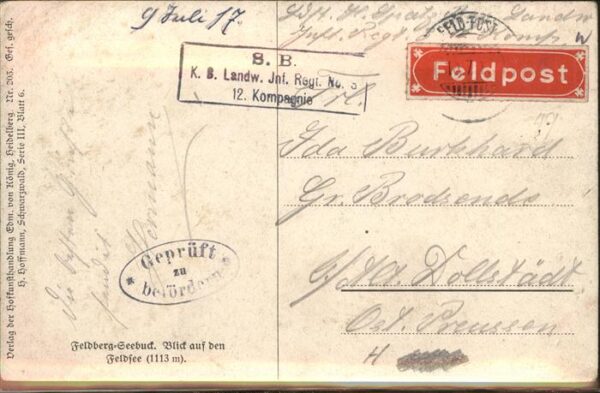 9 Juli 17.
S. B.
K. B. Landw. Inf. Regt. No. 3
12. Kompagnie
FELD-POST
Feldpost
Frl.
Ida Burkhard
Gr.
Döllstädt
Ost. Preussen
H
Die besten Grüsse
sendet
Hermann
Geprüft
zu
befördern
Feldberg-Seebuck. Blick auf den
Feldsee (1113 m).
Verlag der Hofkunsthandlung Edm. von König, Heidelberg. Nr. 203. Ges. gesch.
H. Hoffmann, Schwarzwald, Serie III, Blatt 6.